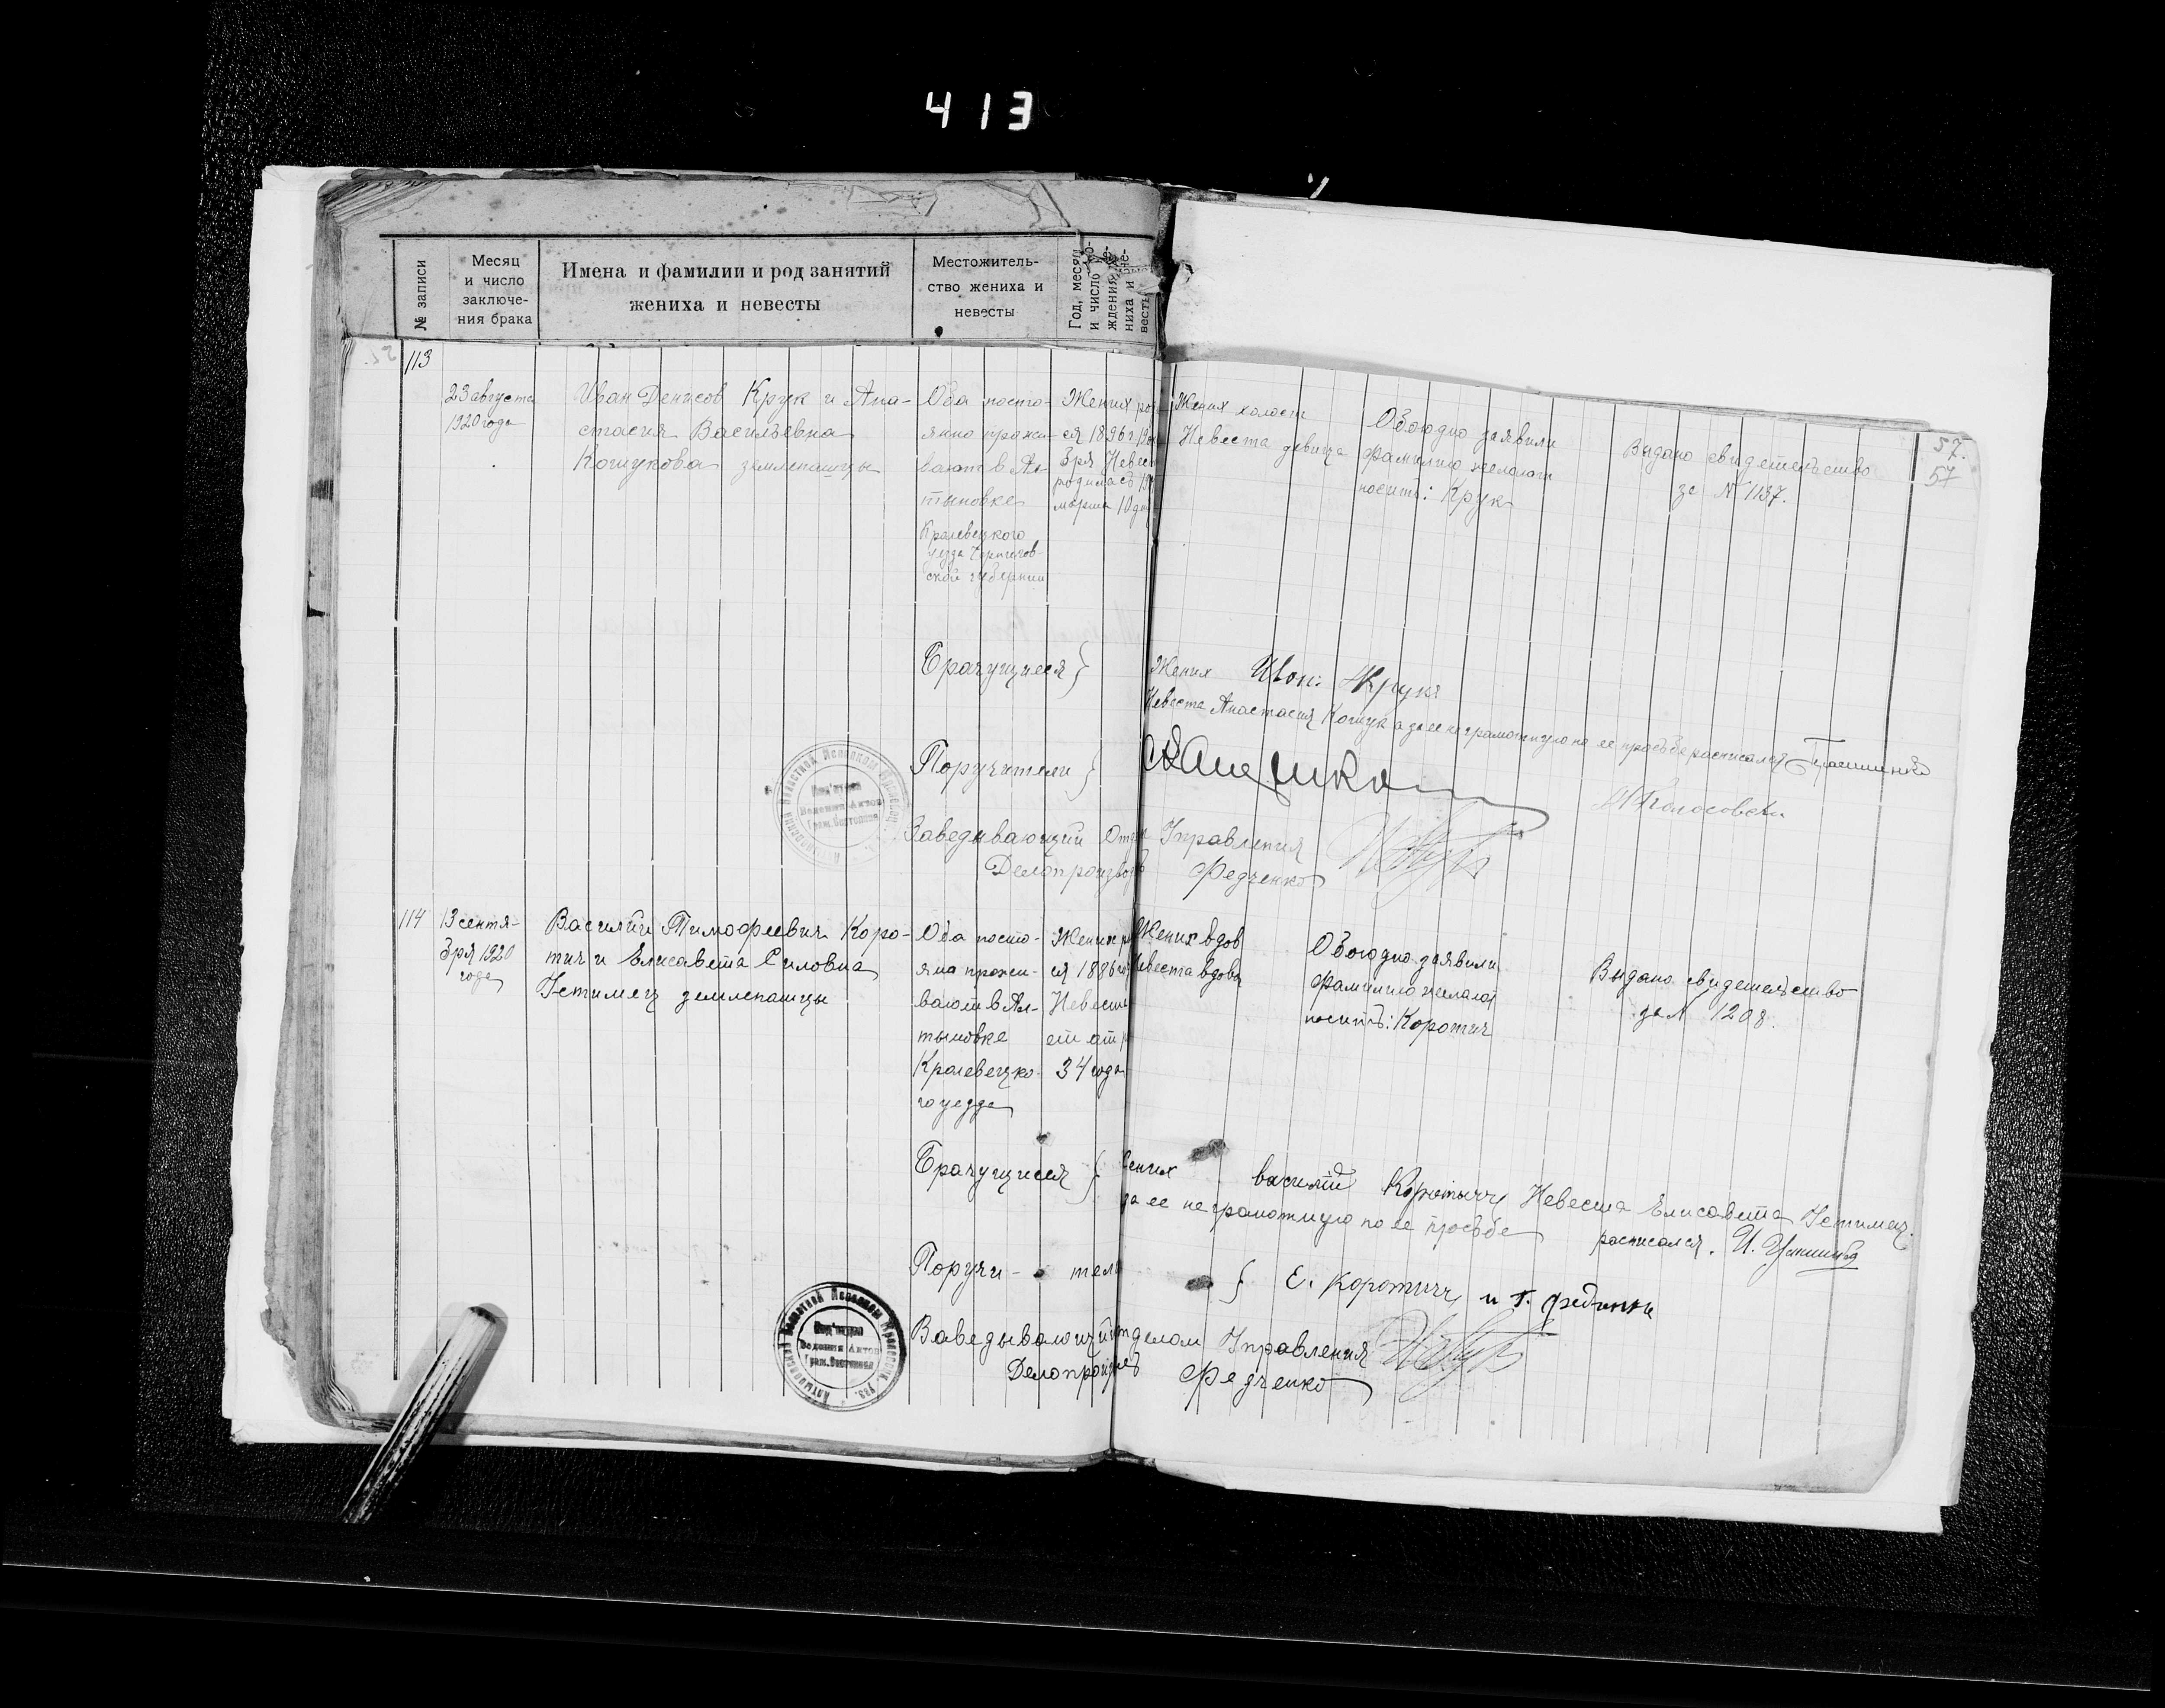 413
№ записи
Месяц
и число
заключе-
ния брака
Имена и фамилии и род занятий
жениха и невесты
Местожитель-
ство жениха и
невесты
Год, месяц
и число ро-
ждения же-
ниха и не-
весты
113
23 августа
1920 года
Иван Денисов Крук и Ана-
стасия Васильевна
Кошукова землепашцы
Оба посто-
янно прожи-
вают в Ал-
тыновке
Кролевецкого
уезда Чернигов-
ской губернии
Жених ро
ся 1896 г.
бря Невес
родилась
марта 10 дня
Жених холост
Невеста девица
Обоюдно заявили
фамилию желают
носить: Крук
Выдано свидетельство
за № 1137.
57.
57
Брачущиеся }
Жених Иван Крукъ
Невеста Анастасия Кошук а за ее неграмотную по ее просьбе расписался
Поручители }
Заведывающий Отдел Управления
Делопроизвод Федченко
114
13 сентя-
бря 1920
года
Василий Тимофеевич Коро-
тич и Елисавета Силовна
Устимец землепашцы
Оба посто-
яно прожи-
вают в Ал-
тыновке
Кролевецко-
го уезда
Жених р
ся 1886 го
Невеста
ет от р
34 года
Жених вдов
Невеста вдова
Обоюдно заявили
фамилию желают
носить: Коротич
Выдано свидетельство
за № 1208.
Брачущиеся {
Жених василий Коротичъ Невеста Елисавета Устимец.
за ее неграмотную по ее просьбе расписался. И.
Поручи- тели } Е. Коротичъ и Г.
Заведывающий отделом Управления
Делопроизвд Федченко